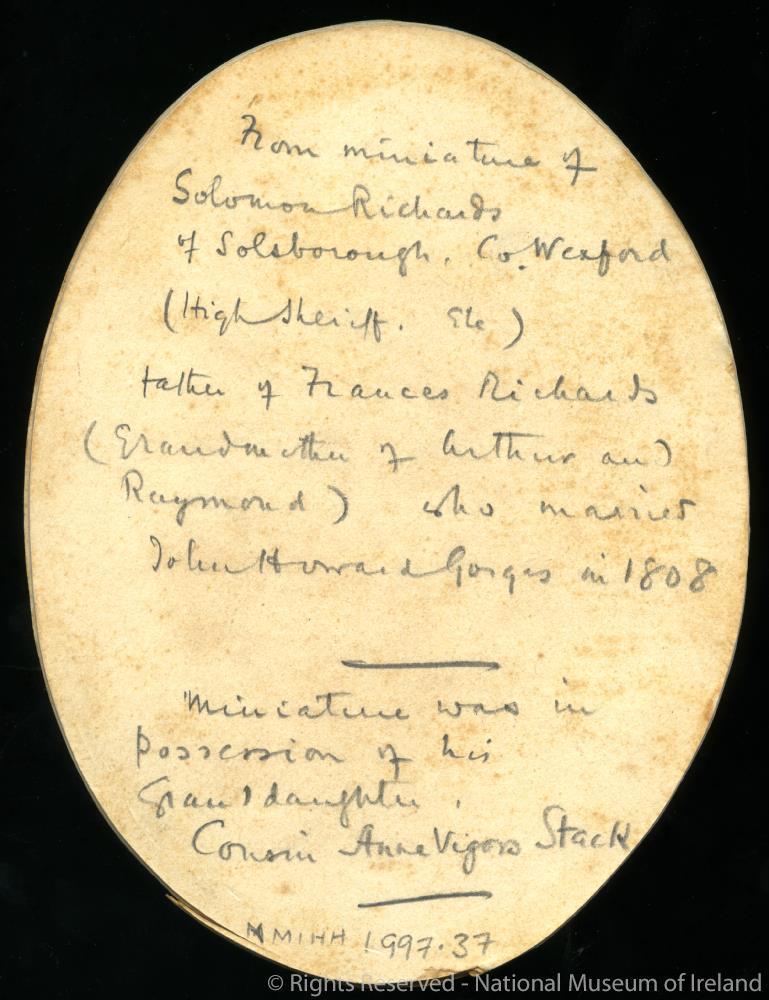 From miniature of
Solomon Richards
of Solsborough. Co. Wexford
(High Sheriff. Etc)
father of Frances Richards
(Grandmother of Arthur and
Raymond) who married
John Howard Gorges in 1808
Miniature was in
possession of his
Granddaughter,
Cousin Anne Vigors Stack
NMIHH 1997.37
© Rights Reserved - National Museum of Ireland